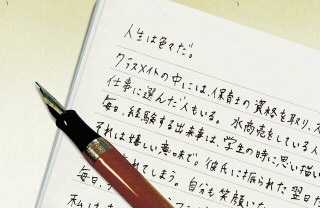 人生は色々だ。
クラスメイトの中には、保育士の資格を取り、ス
仕事に選んだ人もいる。水商売をしている人
毎日、経験する出来事は、学生の時に思い描い
それは嬉しい意味で。彼氏に振られた翌日
れてしまう。自分も笑顔に
毎日、
私は